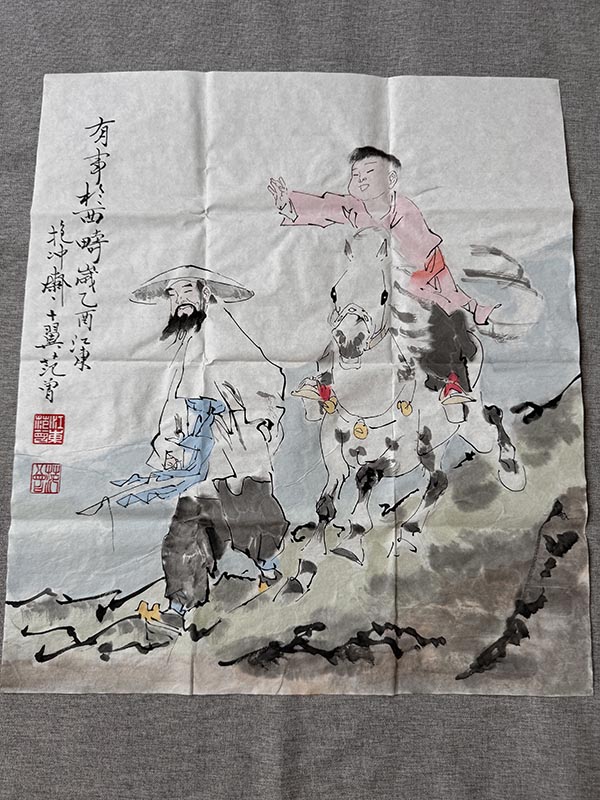 有事於西疇歲乙酉江東
抱冲齋十翼范曾